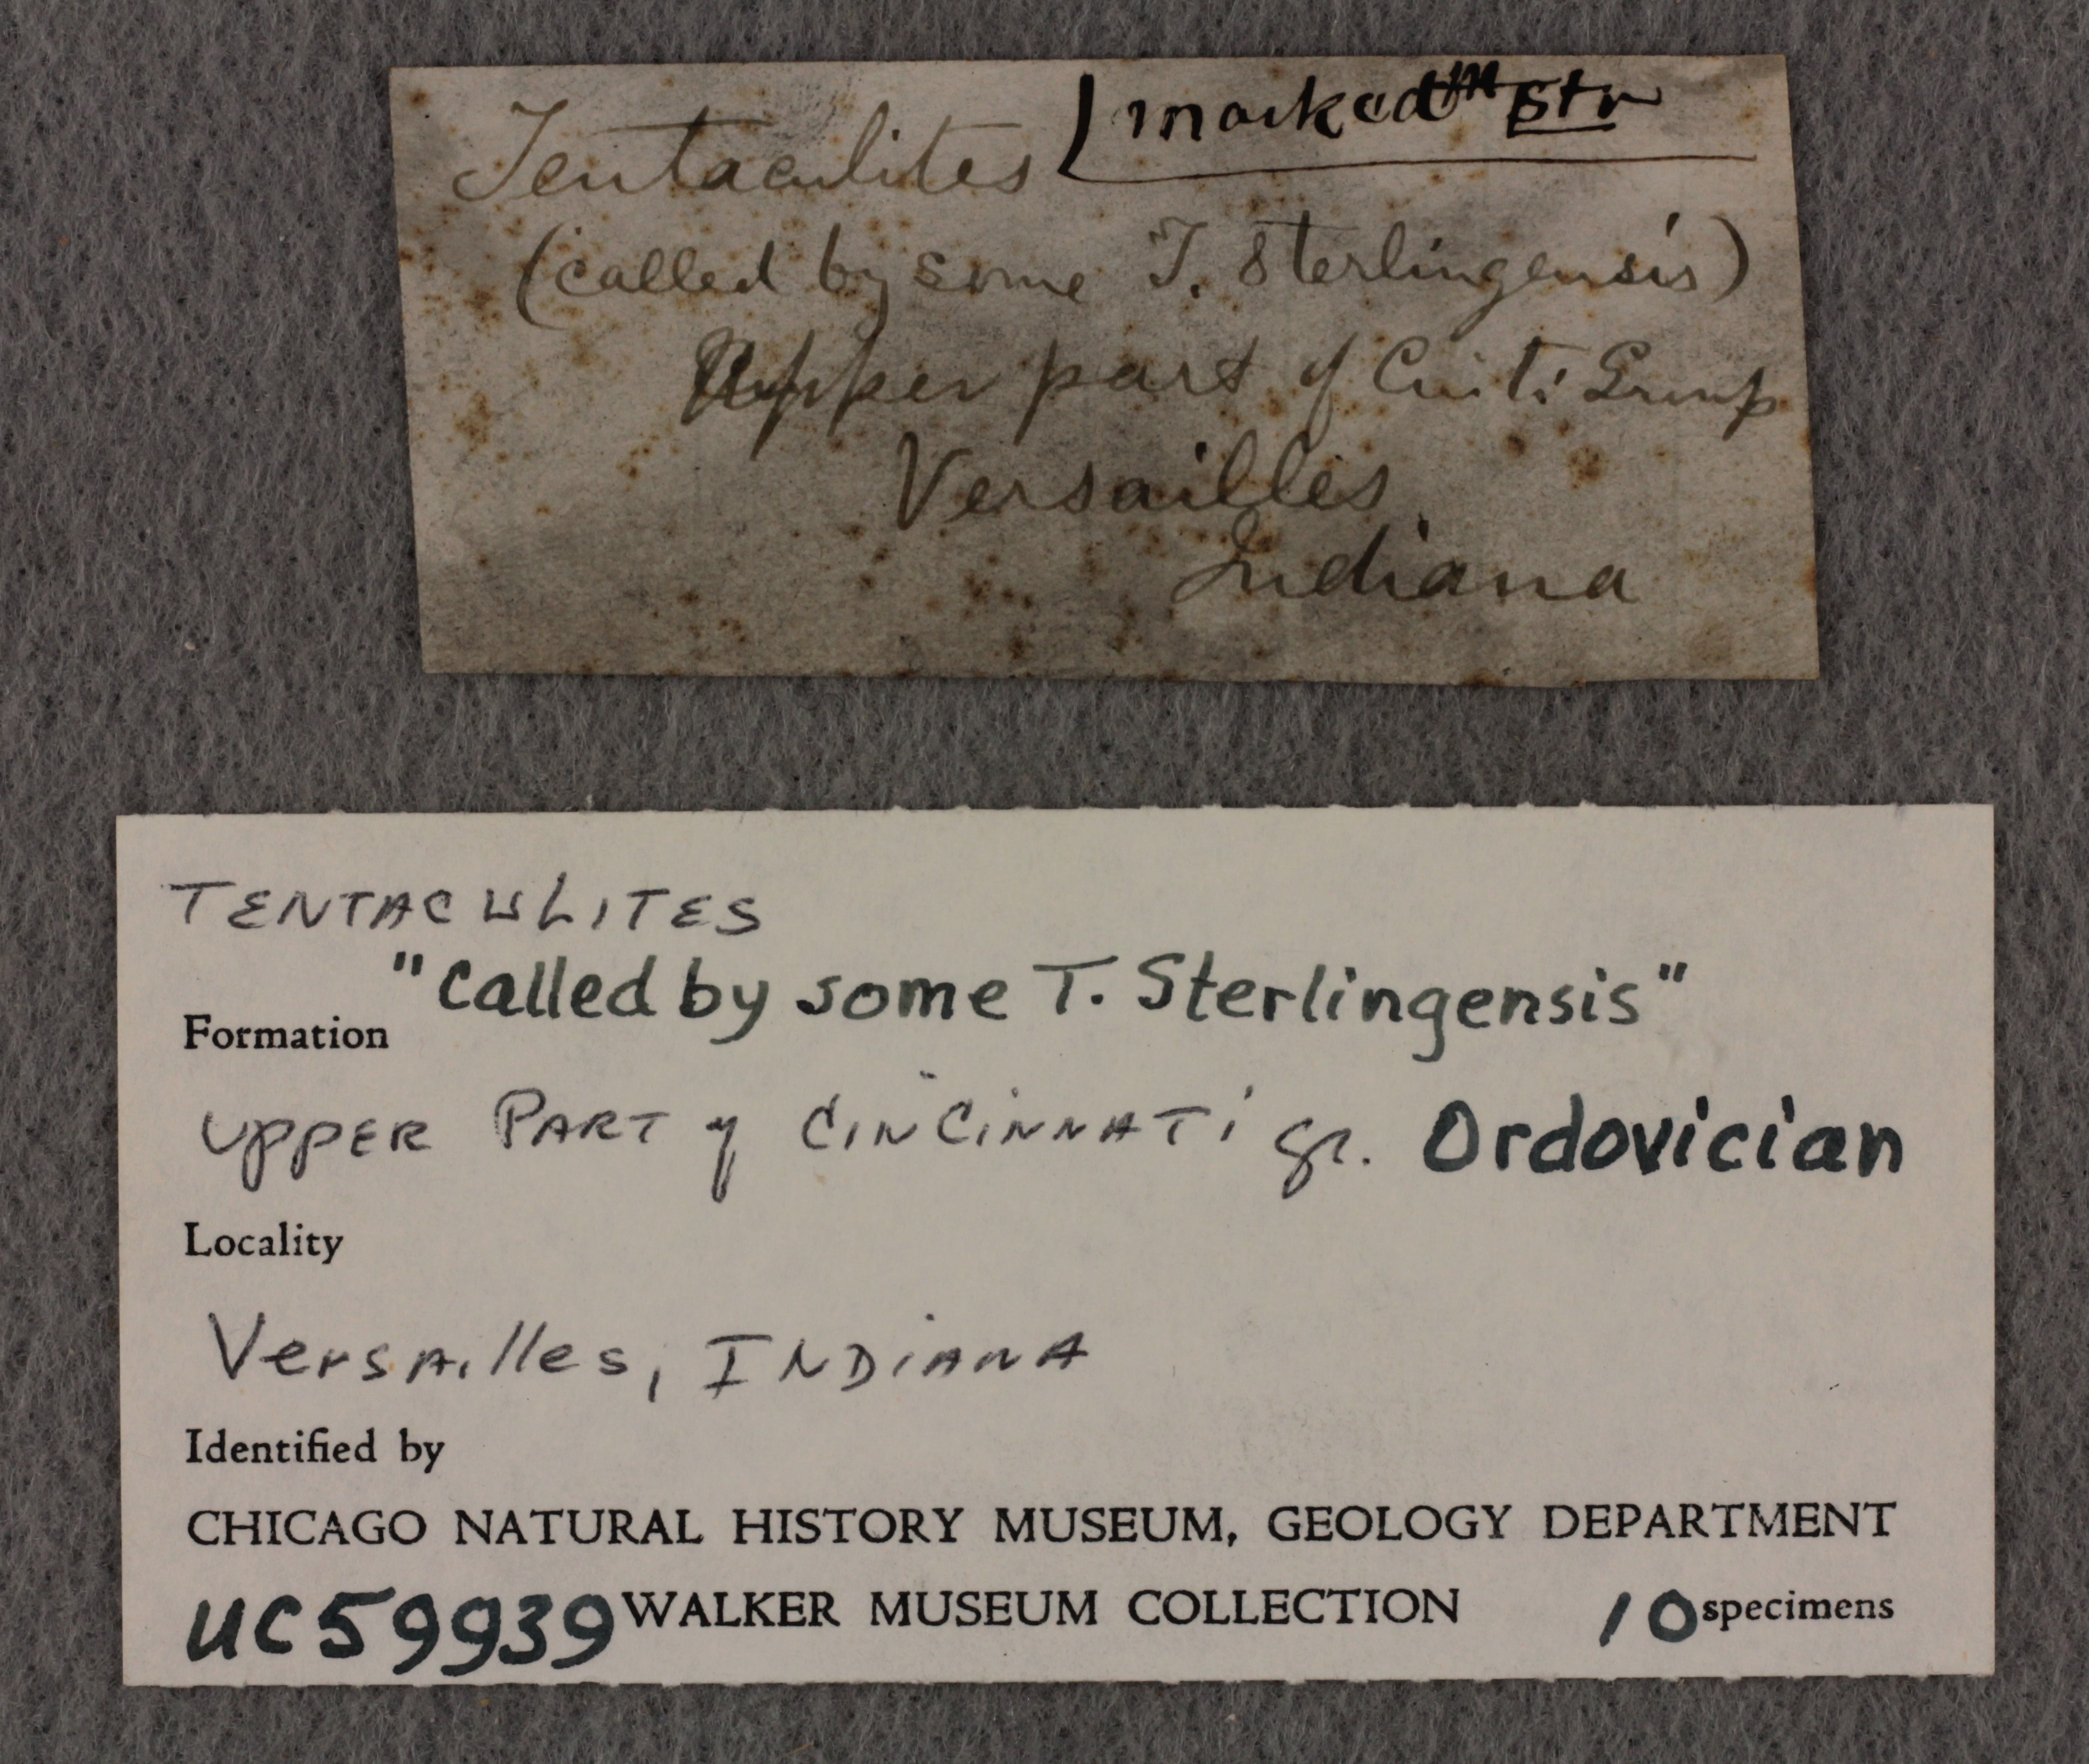 Tentaculites marked m str
(called by some T. Sterlingensis)
Upper part of Cinti Group
Versailles
Indiana
TENTACULITES
"called by some T. Sterlingensis"
Formation
UPPER PART of CINCINNATI Gr. Ordovician
Locality
Versailles, INDIANA
Identified by
CHICAGO NATURAL HISTORY MUSEUM, GEOLOGY DEPARTMENT
UC59939 WALKER MUSEUM COLLECTION 10 specimens